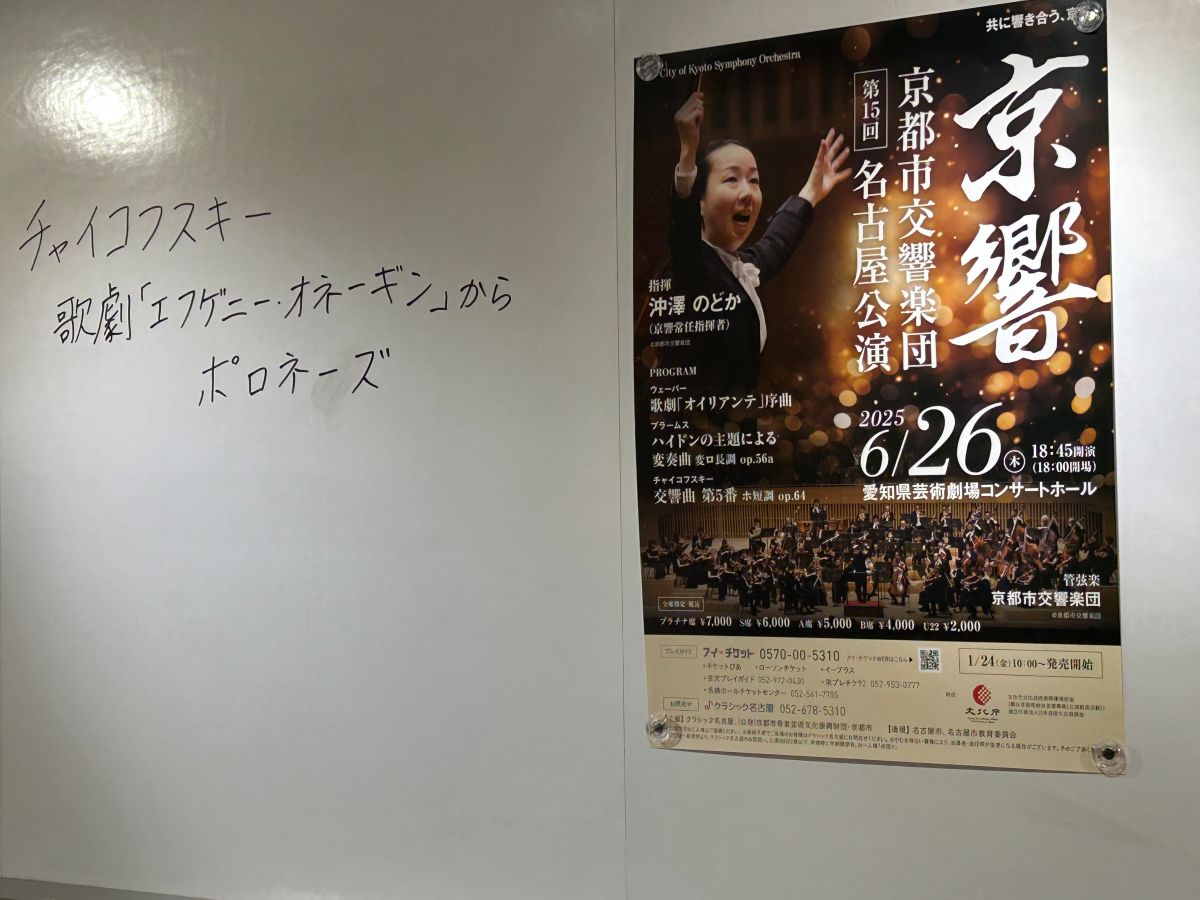 チャイコフスキー
歌劇「エフゲニー・オネーギン」から
ポロネーズ
共に響き合う、京
City of Kyoto Symphony Orchestra
京響
京都市交響楽団
第15回
名古屋公演
指揮
沖澤 のどか
(京響常任指揮者)
©京都市交響楽団
PROGRAM
ウェーバー
歌劇「オイリアンテ」序曲
ブラームス
ハイドンの主題による
変奏曲 変ロ長調 op.56a
チャイコフスキー
交響曲 第5番 ホ短調 op.64
2025
6/26 木
18:45開演
(18:00開場)
愛知県芸術劇場コンサートホール
管弦楽
京都市交響楽団
©京都市交響楽団
全席指定・税込
プラチナ席 ¥7,000 S席 ¥6,000 A席 ¥5,000 B席 ¥4,000 U22 ¥2,000
プレイガイド アイ・チケット 0570-00-5310 アイ・チケットWEBはこちら▶
・チケットぴあ ・ローソンチケット ・イープラス
・芸文プレイガイド 052-972-0430 ・栄プレチケ92 052-953-0777
・名鉄ホールチケットセンター 052-561-7755
お問合せ クラシック名古屋 052-678-5310
1/24(金)10:00〜発売開始
助成
文化庁
【主催】クラシック名古屋、(公財)京都市音楽芸術文化振興財団・京都市 【後援】名古屋市、名古屋市教育委員会